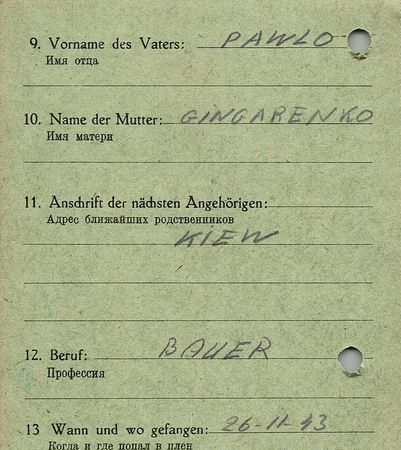 9. Vorname des Vaters: PAWLO
Имя отца
10. Name der Mutter: GINGARENKO
Имя матери
11. Anschrift der nächsten Angehörigen:
Адрес ближайших родственников
KIEW
12. Beruf: BAUER
Профессия
13 Wann und wo gefangen: 26-11-43
Когда и где попал в плен